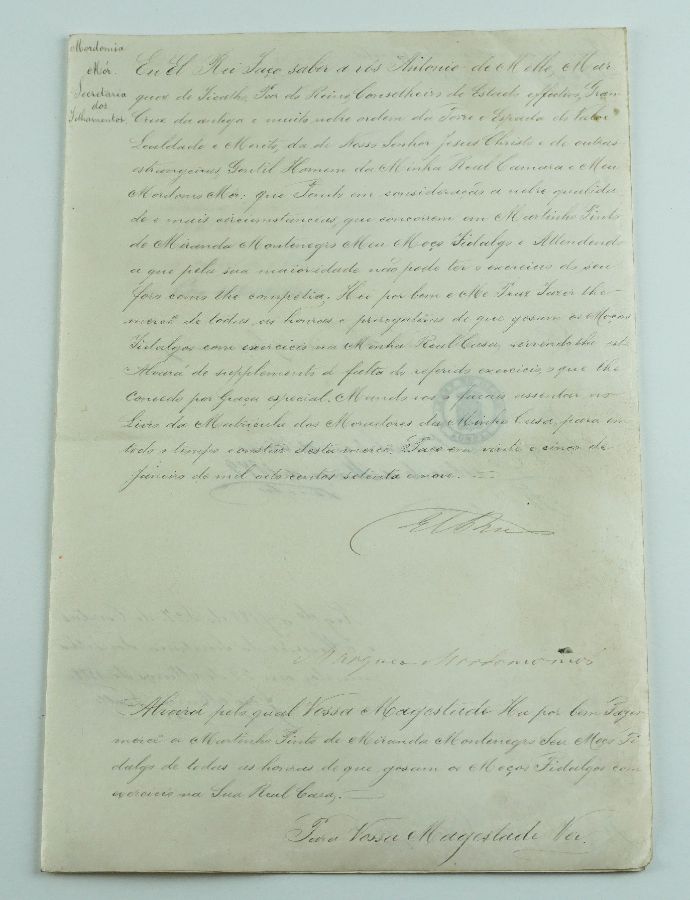 Mordomia
Mór.
Secretaria
dos
Filhamentos
Eu El Rei Faço saber a vós Antonio de Mello, Mar
quez de Ficalho, Par do Reino, Conselheiro de Estado effectivo, Gran
Cruz da antiga e muito nobre ordem da Torre e Espada do Valor
Lealdade e Merito, da de Nosso Senhor Jesus Christo e de outras
estrangeiras Gentil Homem da Minha Real Camara e Meu
Mordomo Mór: que Tendo em consideração a nobre qualida
de e mais circumstancias, que concorrem em Martinho Pinto
de Miranda Montenegro Meu Moço Fidalgo e Attendendo
a que pela sua maioridade não pode ter o exercicio do seu
foro como lhe competia. Hei por bem e Me Praz Fazer lhe
mercê de todas as honras e prerogativas de que gosam os Moços
Fidalgos com exercicio na Minha Real Casa, servindo lhe este
Alvará de supplemento á falta do referido exercicio, o que lhe
Concedo por Graça especial. Mando vos o façais assentar no
Livro da Matricula dos Moradores da Minha Casa, para em
todo o tempo constar desta mercê. Paço em vinte e cinco de
Janeiro de mil oito centos setenta e nove.
El Rei
Marquez Mordomo mór
Alvará pelo qual Vossa Magestade Ha por bem Fazer
mercê a Martinho Pinto de Miranda Montenegro Seu Moço Fi
dalgo de todas as honras de que gosam os Moços Fidalgos com
exercicio na Sua Real Casa.
Para Vossa Magestade Ver.